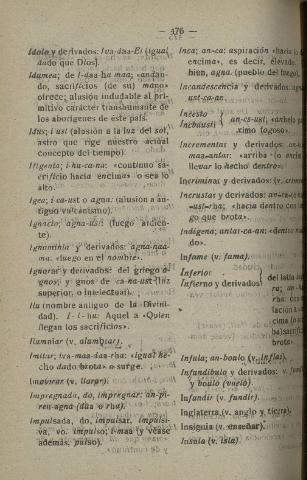 — 376 —
Idolo y derivados: iva-daa-El (igual
dado que Dios).
Idumea; de l-daa-hu maa; «andan-
do, sacrificios (de su) mano»
ofrece; alusión indudable al pri-
mitivo carácter transhumante de
los aborigenes de este país.
Idus; i ust (alusión a la luz del sol,
astro que rige nuestro actual
concepto del tiempo).
Ifigenia; i hu-ca-na: «continuo sa-
crificio hacia encima» o sea lo
alto.
Igea; i ca-ust o agna. (alusión a an-
tiguo vulcanismo).
Ignacio; agna-usti (fuego ardien-
te).
Ignominia y derivados: agna-naa-
ma. «fuego en el nombre».
Ignorar y derivados: del griego a-
gnos; y gnos de ca na-ust (luz
superior, o intelectual).
Ila (nombre antiguo de la Divini-
dad). I-l-hu: Aquel a «Quien
llegan los sacrificios».
Iluminar (v. alumbrar).
Imitar; iva-maa-daa-rha: «igual he-
cho dado brota» o surge.
Implorar (v. llorar).
Impregnada, do, impregnar: an-pi-
ren-agna-(daa o rha).
Impulsada, do, impulsar, impulsi-
va, vo, impulso; i-maa (y véase
además, pulso).
Inca; an-ca: aspiración «hacia lo
encima», es decir, elevado.
bien, agna. (pueblo del fuego).
Incandescencia y derivados:
ust-ca-an.
Incesto
Incbusti } an-cs-ust, «anhelo
cimo fogoso».
Incrementar y derivados:
maa-antar: «arriba (o
llevar lo hecho) dentro».
Incriminar y derivados: (v.
Incrustar y derivados:
ust-rha; «hacia dentro
go que brota».
Indígena; untar-ca-an: «dentro
do».
Infame (v. fama).
Inferior
Infierno y derivados }
del latín
Infula; an-boulo (v. Inflas).
Infundíbulo y derivados: v.
y boulo (vuelo).
Infundir (v. fundir).
Inglaterra (v. anglo y tierra).
Insignia (v. enseñar).
Insula (v. isla).